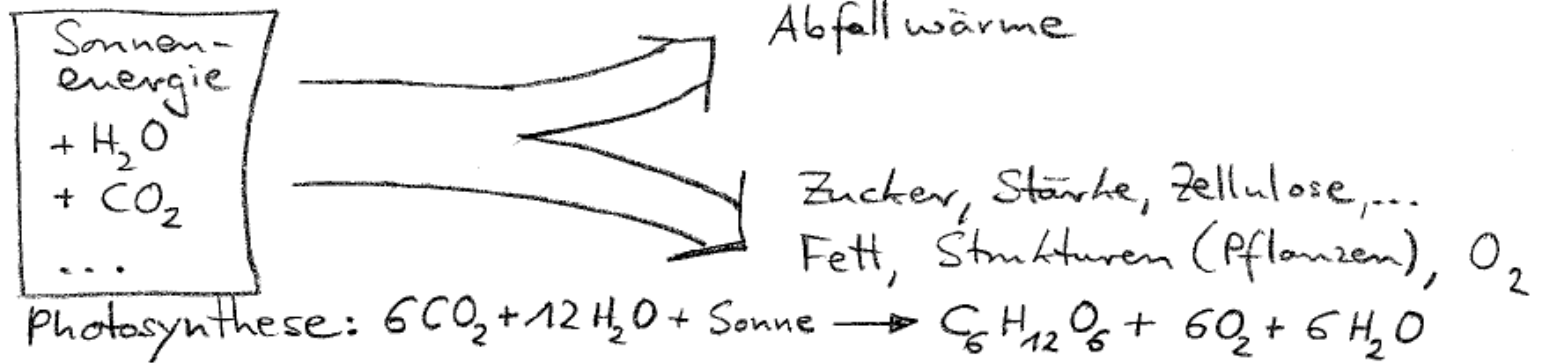 Sonnen-
energie
+ H₂O
+ CO₂
...
Abfallwärme
Zucker, Stärke, Zellulose,...
Fett, Strukturen (Pflanzen), O₂
Photosynthese: 6CO₂+12H₂O + Sonne → C₆H₁₂O₆ + 6O₂ + 6H₂O